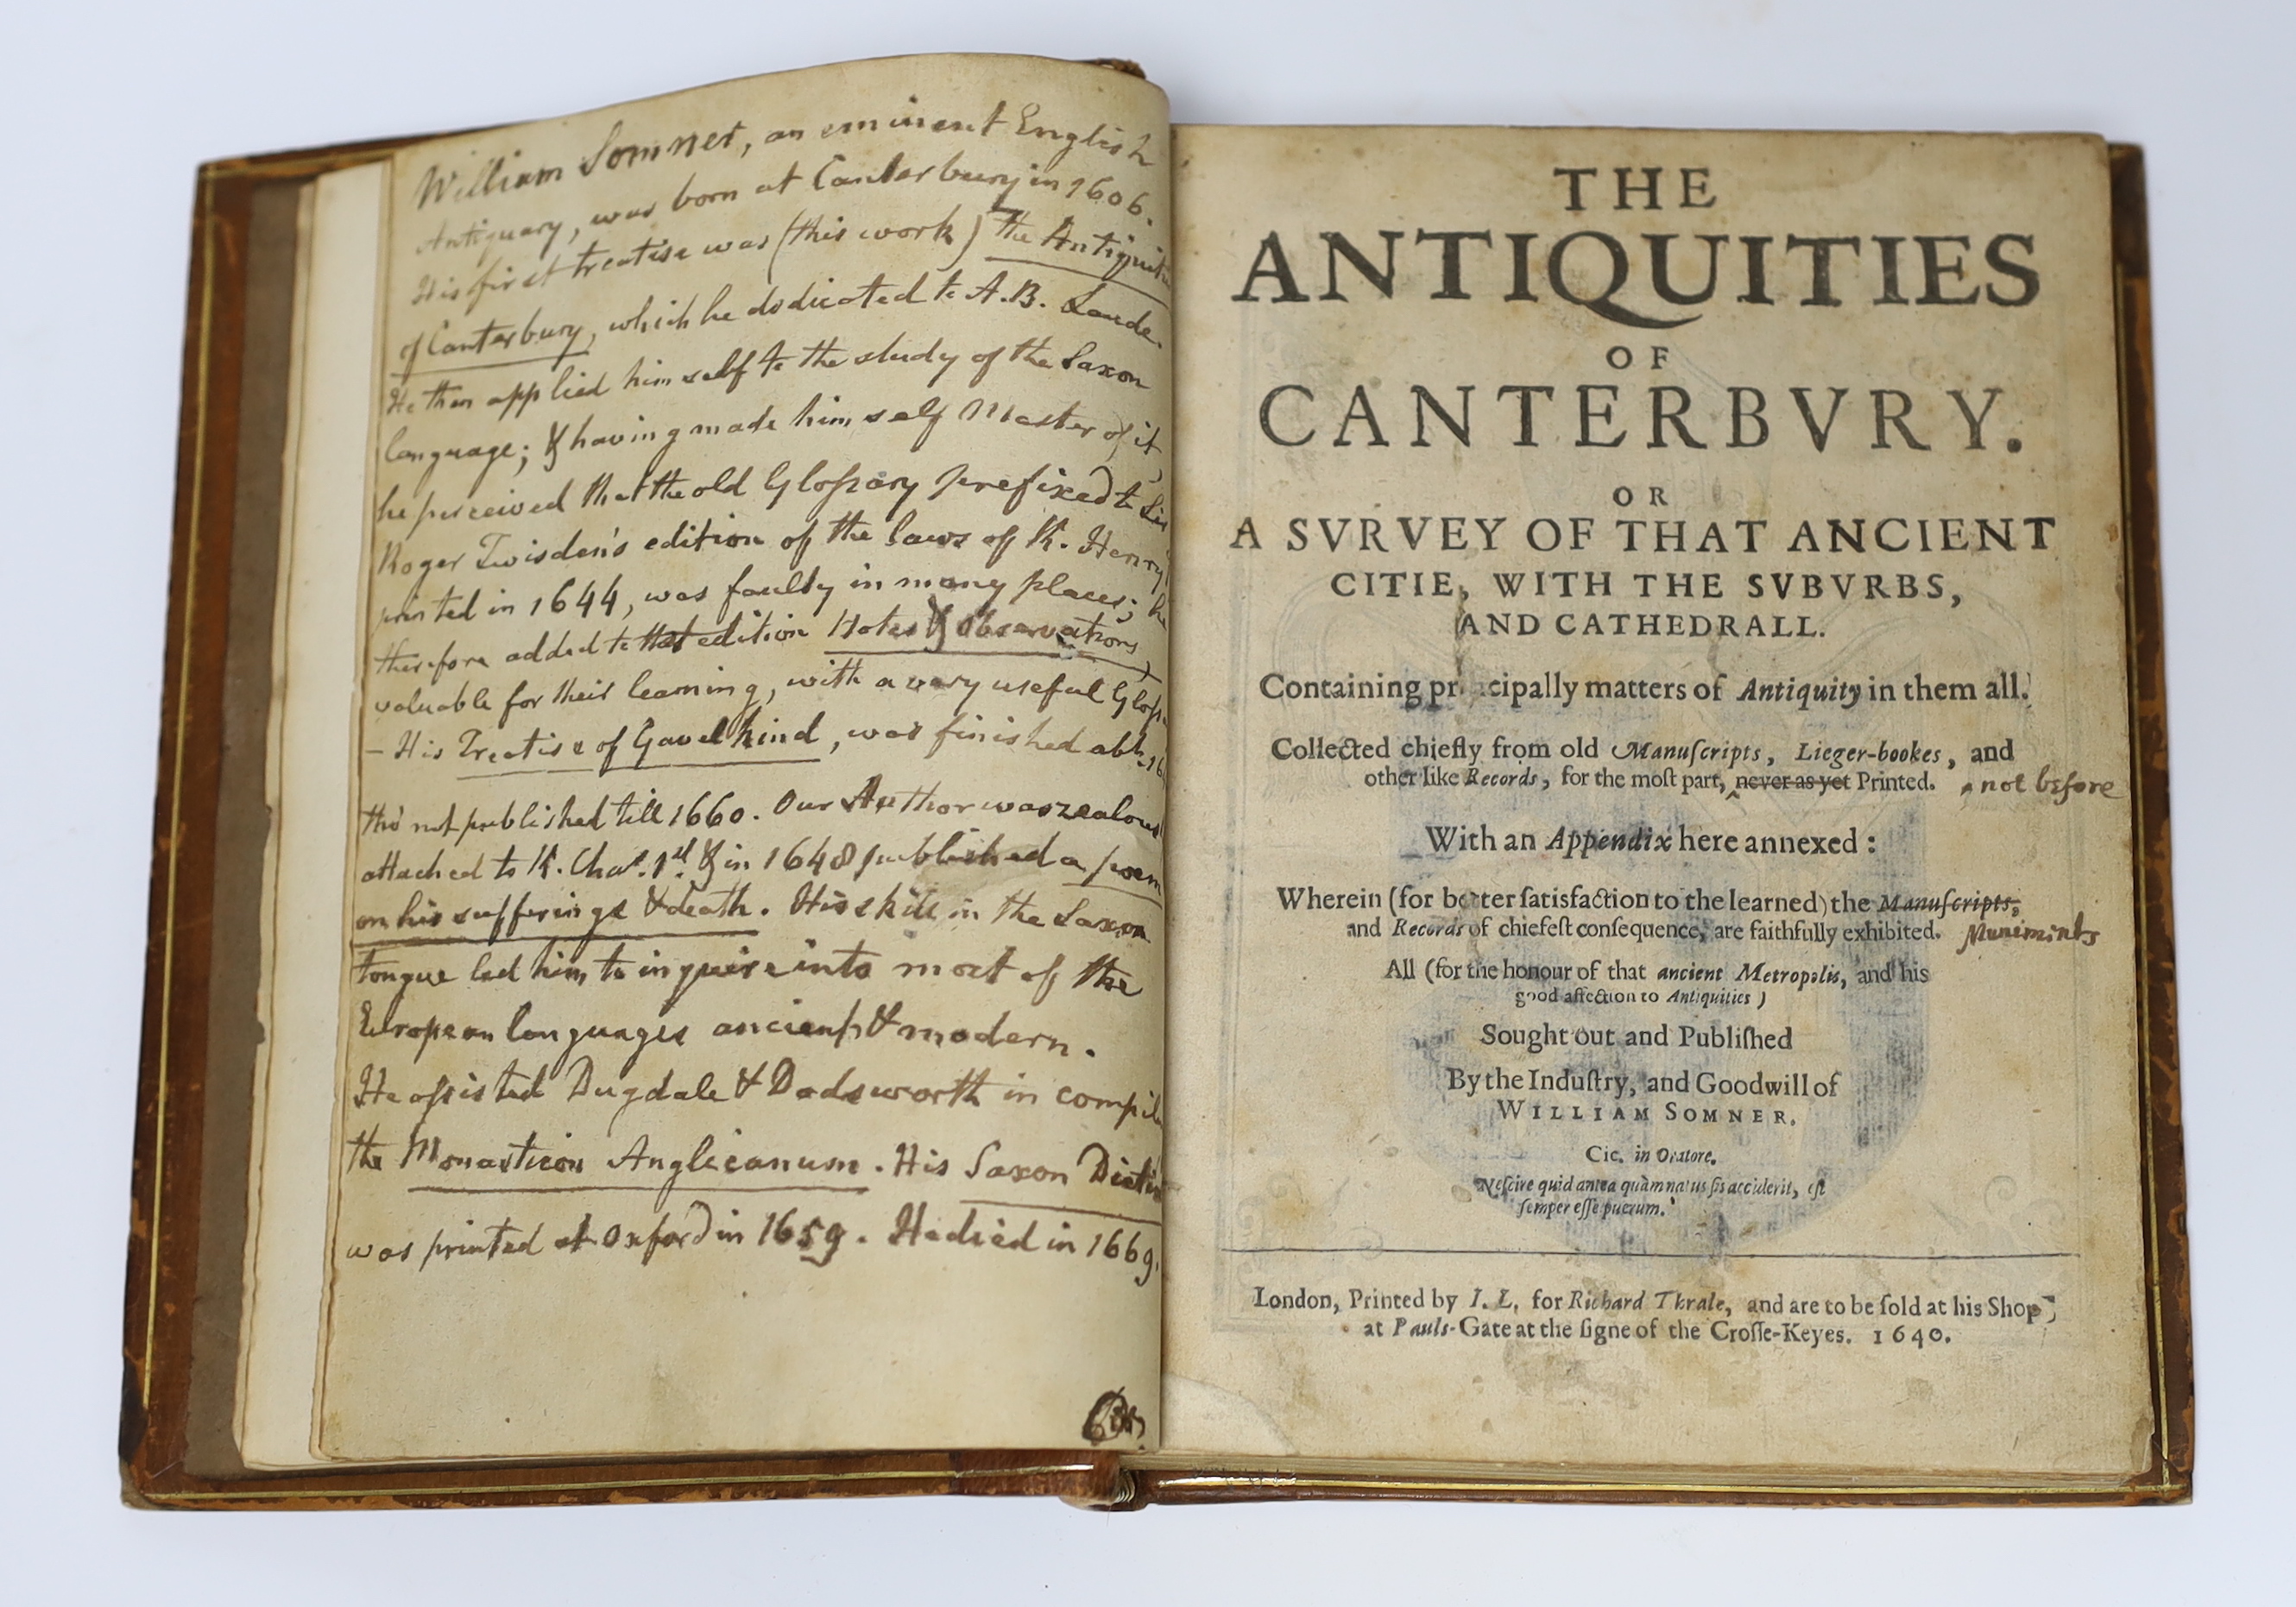 William Somner, an eminent English
Antiquary, was born at Canterbury in 1606.
His first treatise was (this work) The Antiquit
of Canterbury, which he dedicated to A.B. Laude.
He then applied himself to the study of the Saxon
language; & having made himself Master of it,
he perceived that the old Gloſsary prefixed to Sir
Roger Twisden's edition of the laws of K. Henry
printed in 1644, was faulty in many places; he
therefore added to that edition Notes & Observations,
valuable for their learning, with a very useful Gloſs
– His Treatise of Gavelkind, was finished abt. 16
tho' not published till 1660. Our Author was zealous
attached to K. Chas. 1st. & in 1648 published a poem
on his sufferings & death. His skill in the Saxon
tongue led him to inquire into most of the
European languages ancient & modern.
He aſsisted Dugdale & Dodsworth in compil
the Monasticon Anglicanum. His Saxon Dictio
was printed at Oxford in 1659. He died in 1669.
THE
ANTIQUITIES
OF
CANTERBVRY.
OR
A SVRVEY OF THAT ANCIENT
CITIE, WITH THE SVBVRBS,
AND CATHEDRALL.
Containing principally matters of Antiquity in them all.
Collected chiefly from old Manuſcripts, Lieger-bookes, and
other like Records, for the moſt part, never as yet Printed. ‸ not before
With an Appendix here annexed:
Wherein (for better ſatisfaction to the learned) the Manuſcripts,
and Records of chiefeſt conſequence, are faithfully exhibited. Muniments
All (for the honour of that ancient Metropolis, and his
good affection to Antiquities)
Sought out and Publiſhed
By the Induſtry, and Goodwill of
WILLIAM SOMNER.
Cic. in Oratore.
Neſcire quid antea quàm natus ſis acciderit, eſt
ſemper eſſe puerum.
London, Printed by I. L. for Richard Thrale, and are to be ſold at his Shop,
at Pauls-Gate at the ſigne of the Croſſe-Keyes. 1640.